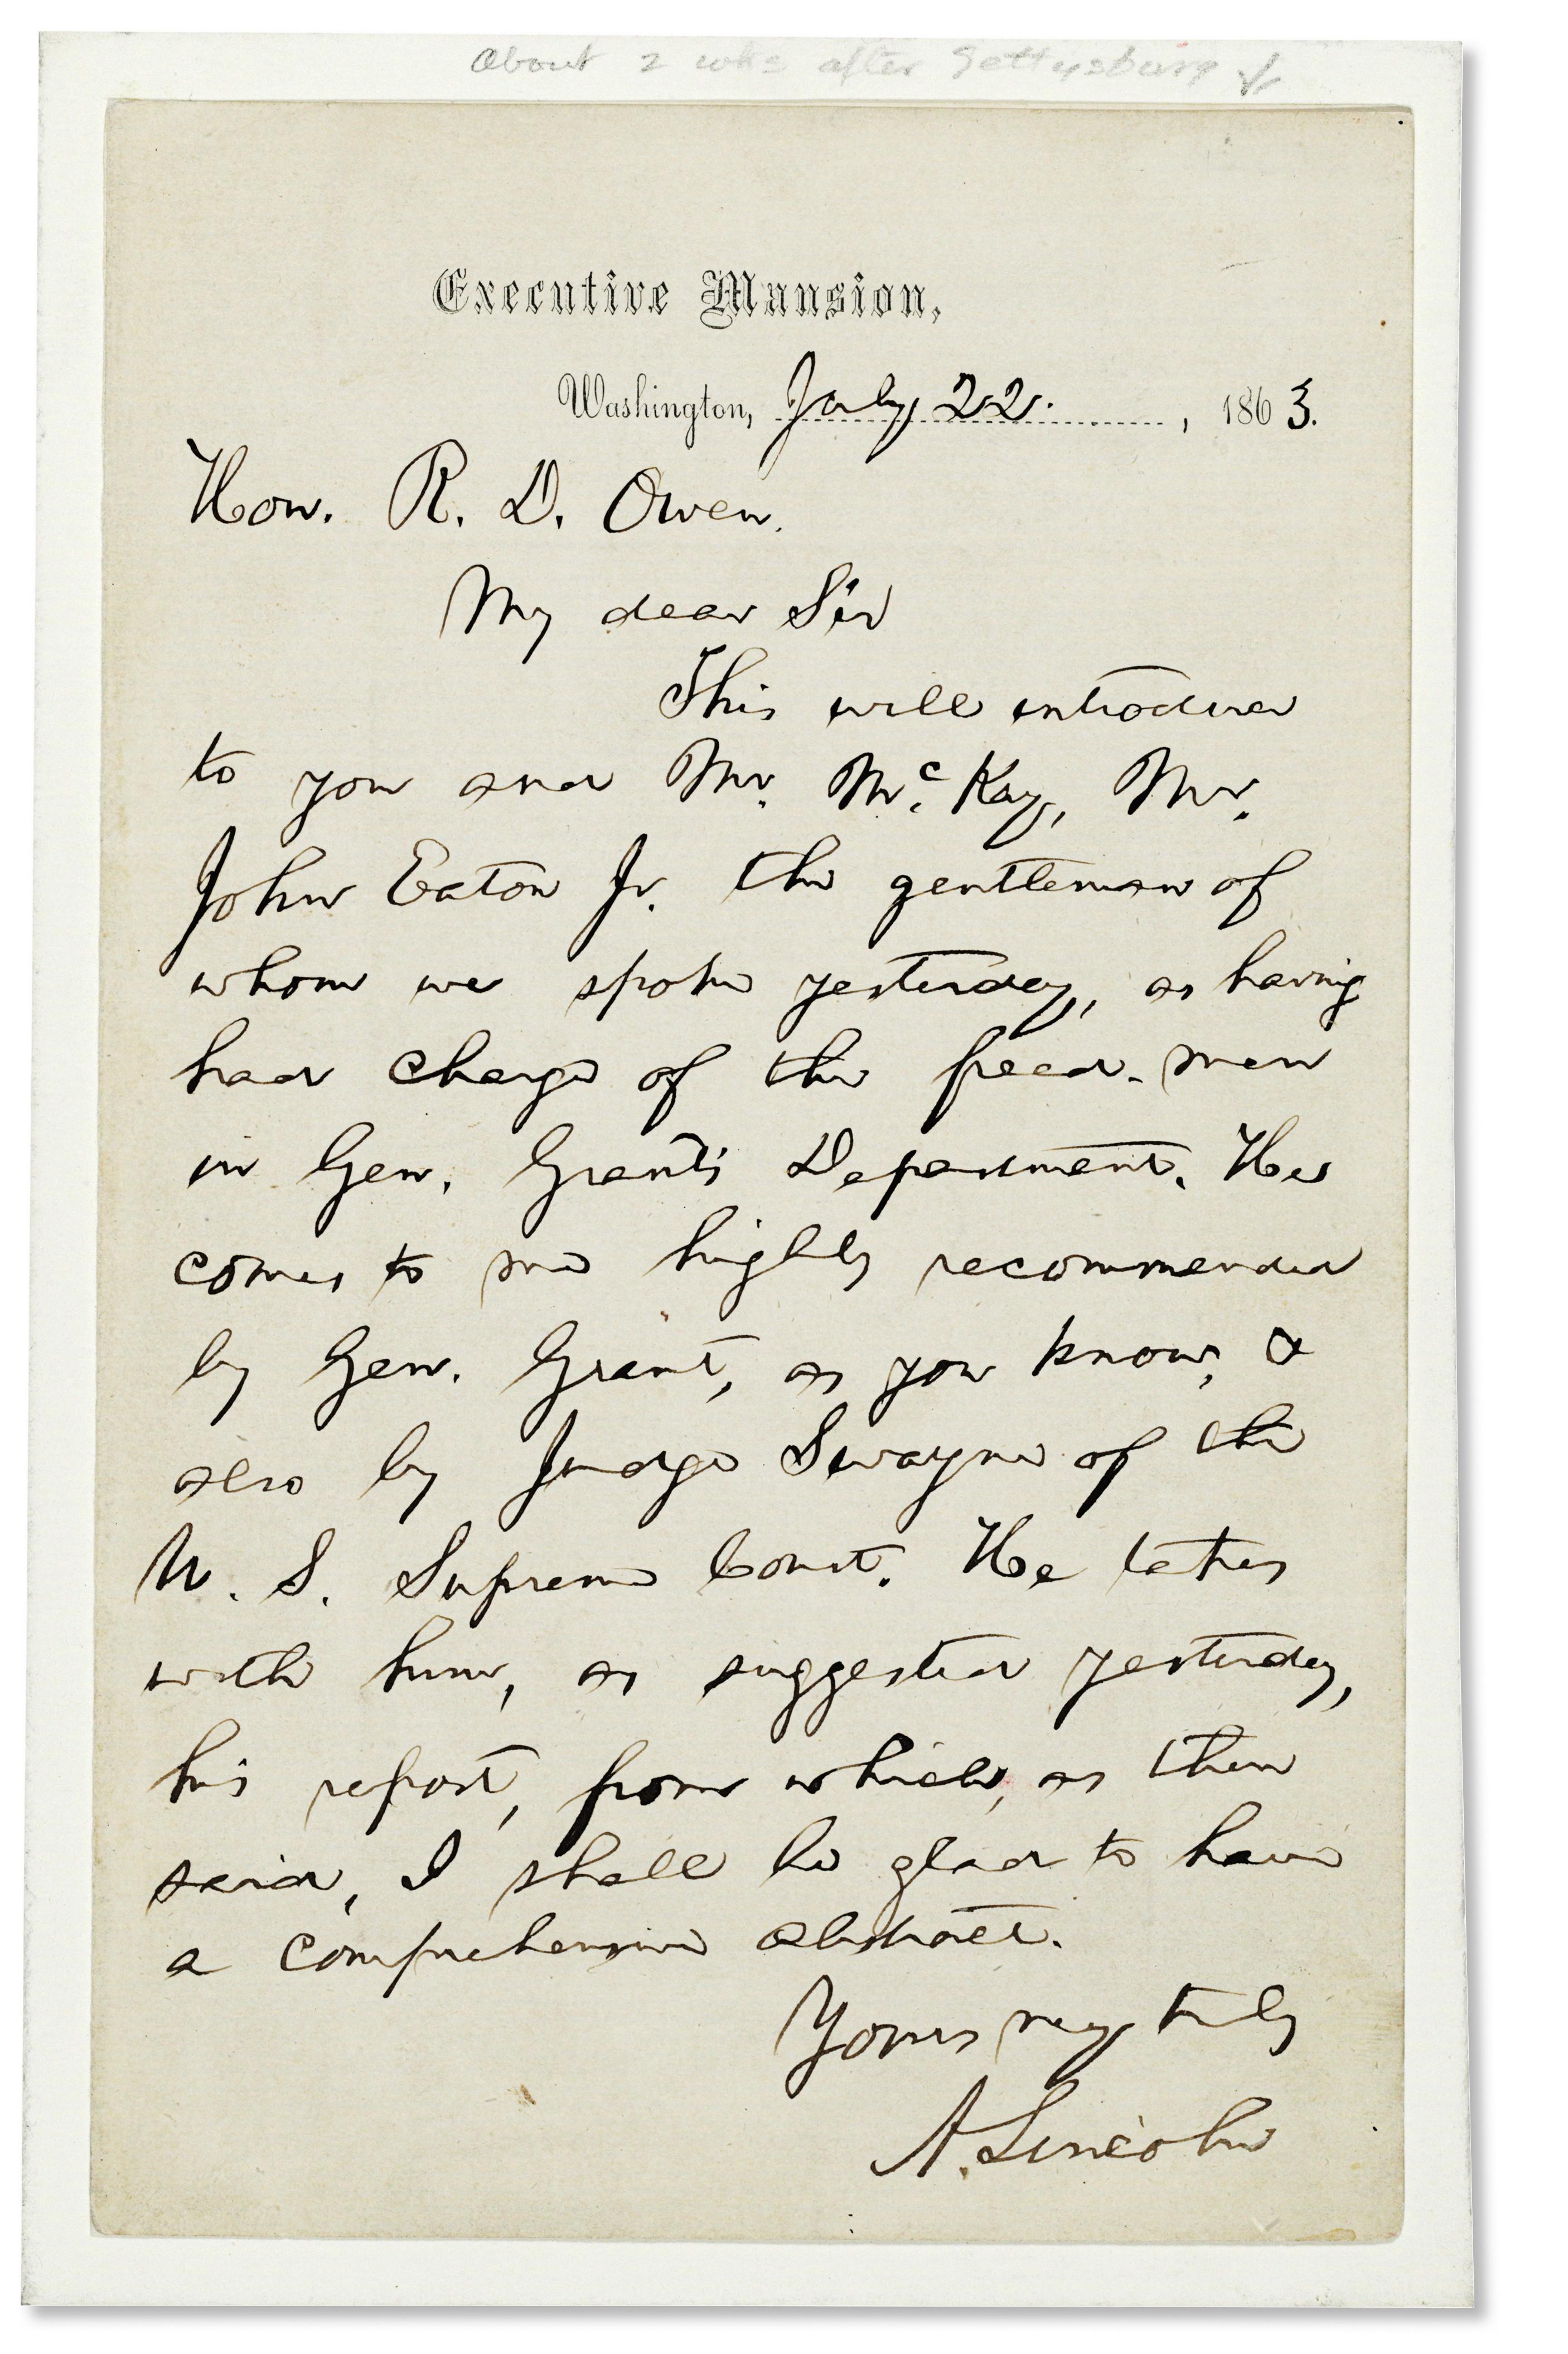 About 2 wks after Gettysburg
Executive Mansion,
Washington, July 22. , 1863.
Hon. R. D. Owen.
My dear Sir
This will introduce
to you and Mr. McKay, Mr.
John Eaton Jr. the gentleman of
whom we spoke yesterday, as having
had charge of the freed-men
in Gen. Grant's Department. He
comes to me highly recommended
by Gen. Grant, as you know, &
also by Judge Swayne of the
U. S. Supreme Court. He takes
with him, as suggested yesterday,
his report, from which, as then
said, I shall be glad to have
a comprehensive abstract.
Yours very truly
A. Lincoln